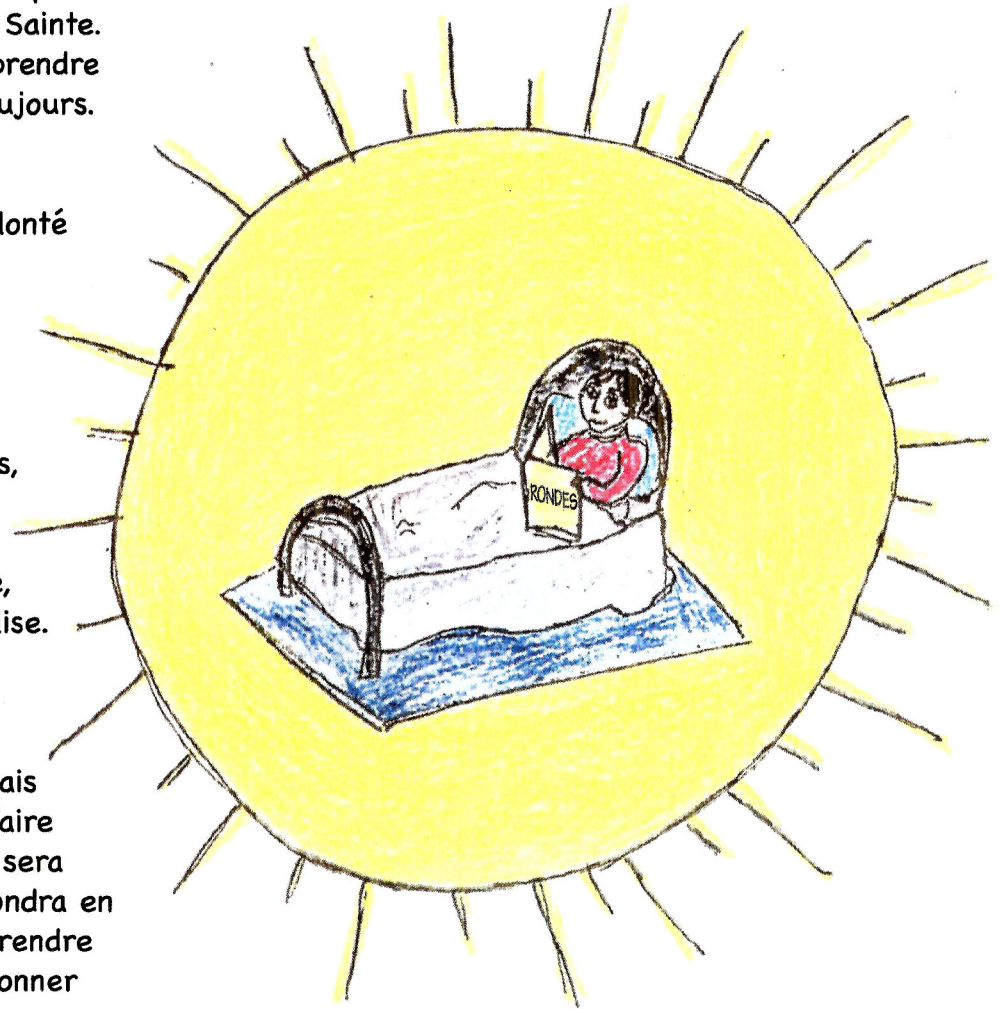 Sainte.
prendre
ujours.
lonté
s,
e,
lise.
ais
aire
sera
ondra en
rendre
onner
RONDES